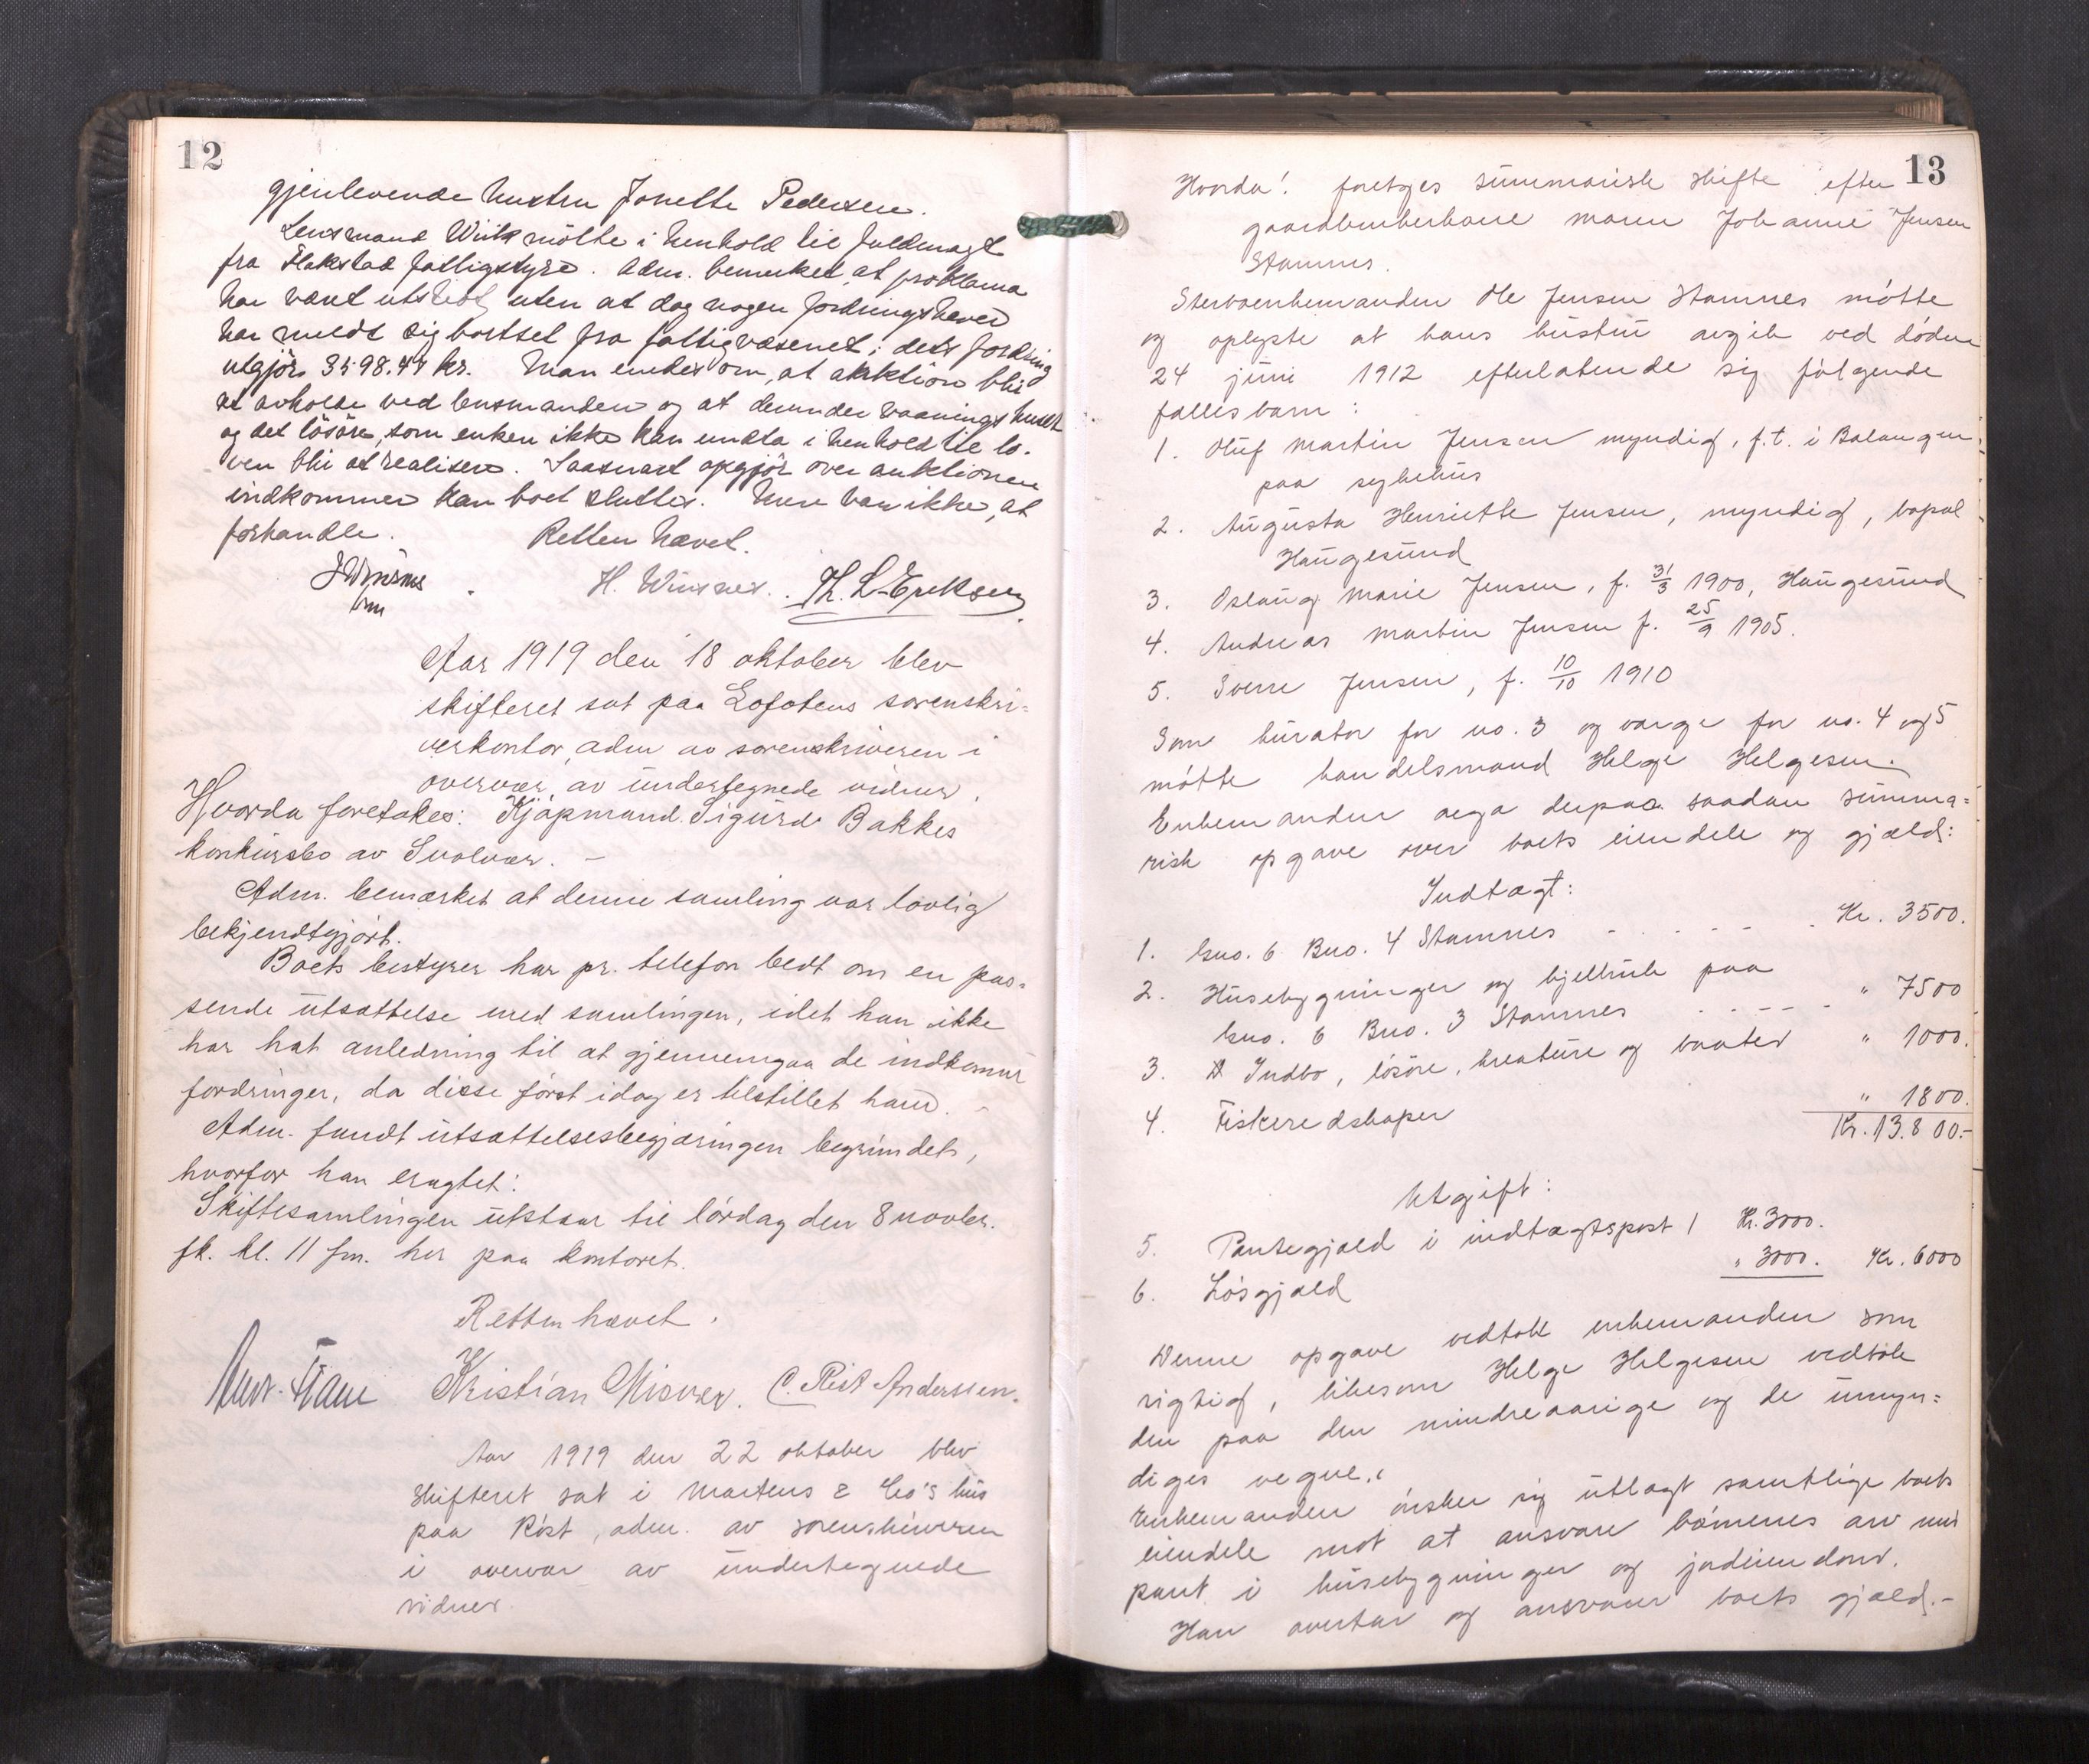 12
gjenlevende hustru Jonette Pedersen.
Lensmand Wiik mötte i henhold til fuldmagt
fra Flakstad fattigstyre. Adm. bemerket, at proklama
har været utstedt uten at dog nogen fordringshaver
har meldt sig bortset fra fattigvæsenet; dets fordring
utgjör 3598.47 kr. Man enedes om, at auktion blir
at avholde ved lensmanden og at derunder vaaningshuset
og det lösöre, som enken ikke kan undta i henhold til lo-
ven blir at realisere. Saasnart opgjör over auktionen
indkommer kan boet sluttes. Mere var ikke at
forhandle. Retten hævet.
H. Winsnes. Th. L. Eriksen
Aar 1919 den 18 oktober blev
skifteret sat paa Lofotens sorenskri=
verkontor, adm av sorenskriveren i
overvær av undertegnede vidner.
Hvorda foretakes: Kjøpmand Sigurd Bakkes
konkursbo av Svolvær. –
Adm. bemærket at denne samling var lovlig
bekjendtgjört.
Boets bestyrer har pr. telefon bedt om en pas-
sende utsættelse med samlingen, idet han ikke
har hat anledning til at gjennemgaa de indkomne
fordringer, da disse först idag er tilstillet ham. –
Adm. fandt utsættelsesbegjæringen begrundet,
hvorfor han eragtet:
Skiftesamlingen utstaar til lördag den 8 novbr.
fk. kl. 11 fm. her paa kontoret.
Retten hævet.
Kristian Misvær. C. Rist Andersen.
Aar 1919 den 22 oktober blev
skifteret sat i Martens & Co's hus
paa Röst, adm. av sorenskriveren
i overvær av undertegnede
vidner.
13
Hvorda! foretoges summarisk skifte efter
gaardbrukerkone Johanne Jensen
Stamnes.
Stervoenkemanden Ole Jensen Stamnes mötte
og oplyste at hans hustru avgik ved döden
24 juni 1912 efterlatende sig fölgende
fællesbarn:
1. Oluf Martin Jensen myndig, f.t. i Balangen
paa sykehus
2. Augusta Henriette Jensen, myndig, bopæl
Haugesund
3. Oslaug Marie Jensen, f. 31/3 1900, Haugesund
4. Andreas Martin Jensen f. 25/9 1905.
5. Sverre Jensen, f. 10/10 1910
Som kurator for no. 3 og værge for no. 4 og 5
mötte handelsmand Helge Helgesen.
Enkemanden avga derpaa saadan summa=
risk opgave over boets eiendele og gjæld:
Indtægt:
1. Gno. 6 Bno. 4 Stamnes - . . - - . Kr. 3500.
2. Husebygninger og hjelbruk paa
Gno. 6 Bno. 3 Stamnes . - - - - " 7500
3. Indbo, lösöre, kreature og baater " 1000.
4. Fiskeredskaper " 1800.
Kr. 13.800.-
Utgift:
5. Pantegjæld i indtægtspost 1 Kr. 3000.
6. Lösgjæld " 3000. Kr. 6000
Denne opgave vedtok enkemanden som
rigtig, likesom Helge Helgesen vedtok
den paa den mindreaarige og de umyn=
diges vegne.
Enkemanden önsker sig utlagt samtlige boets
eiendele mot at ansvare börnenes arv mot
pant i husebygninger og jordeiendom.
Han overtar og ansvarer boets gjæld.-